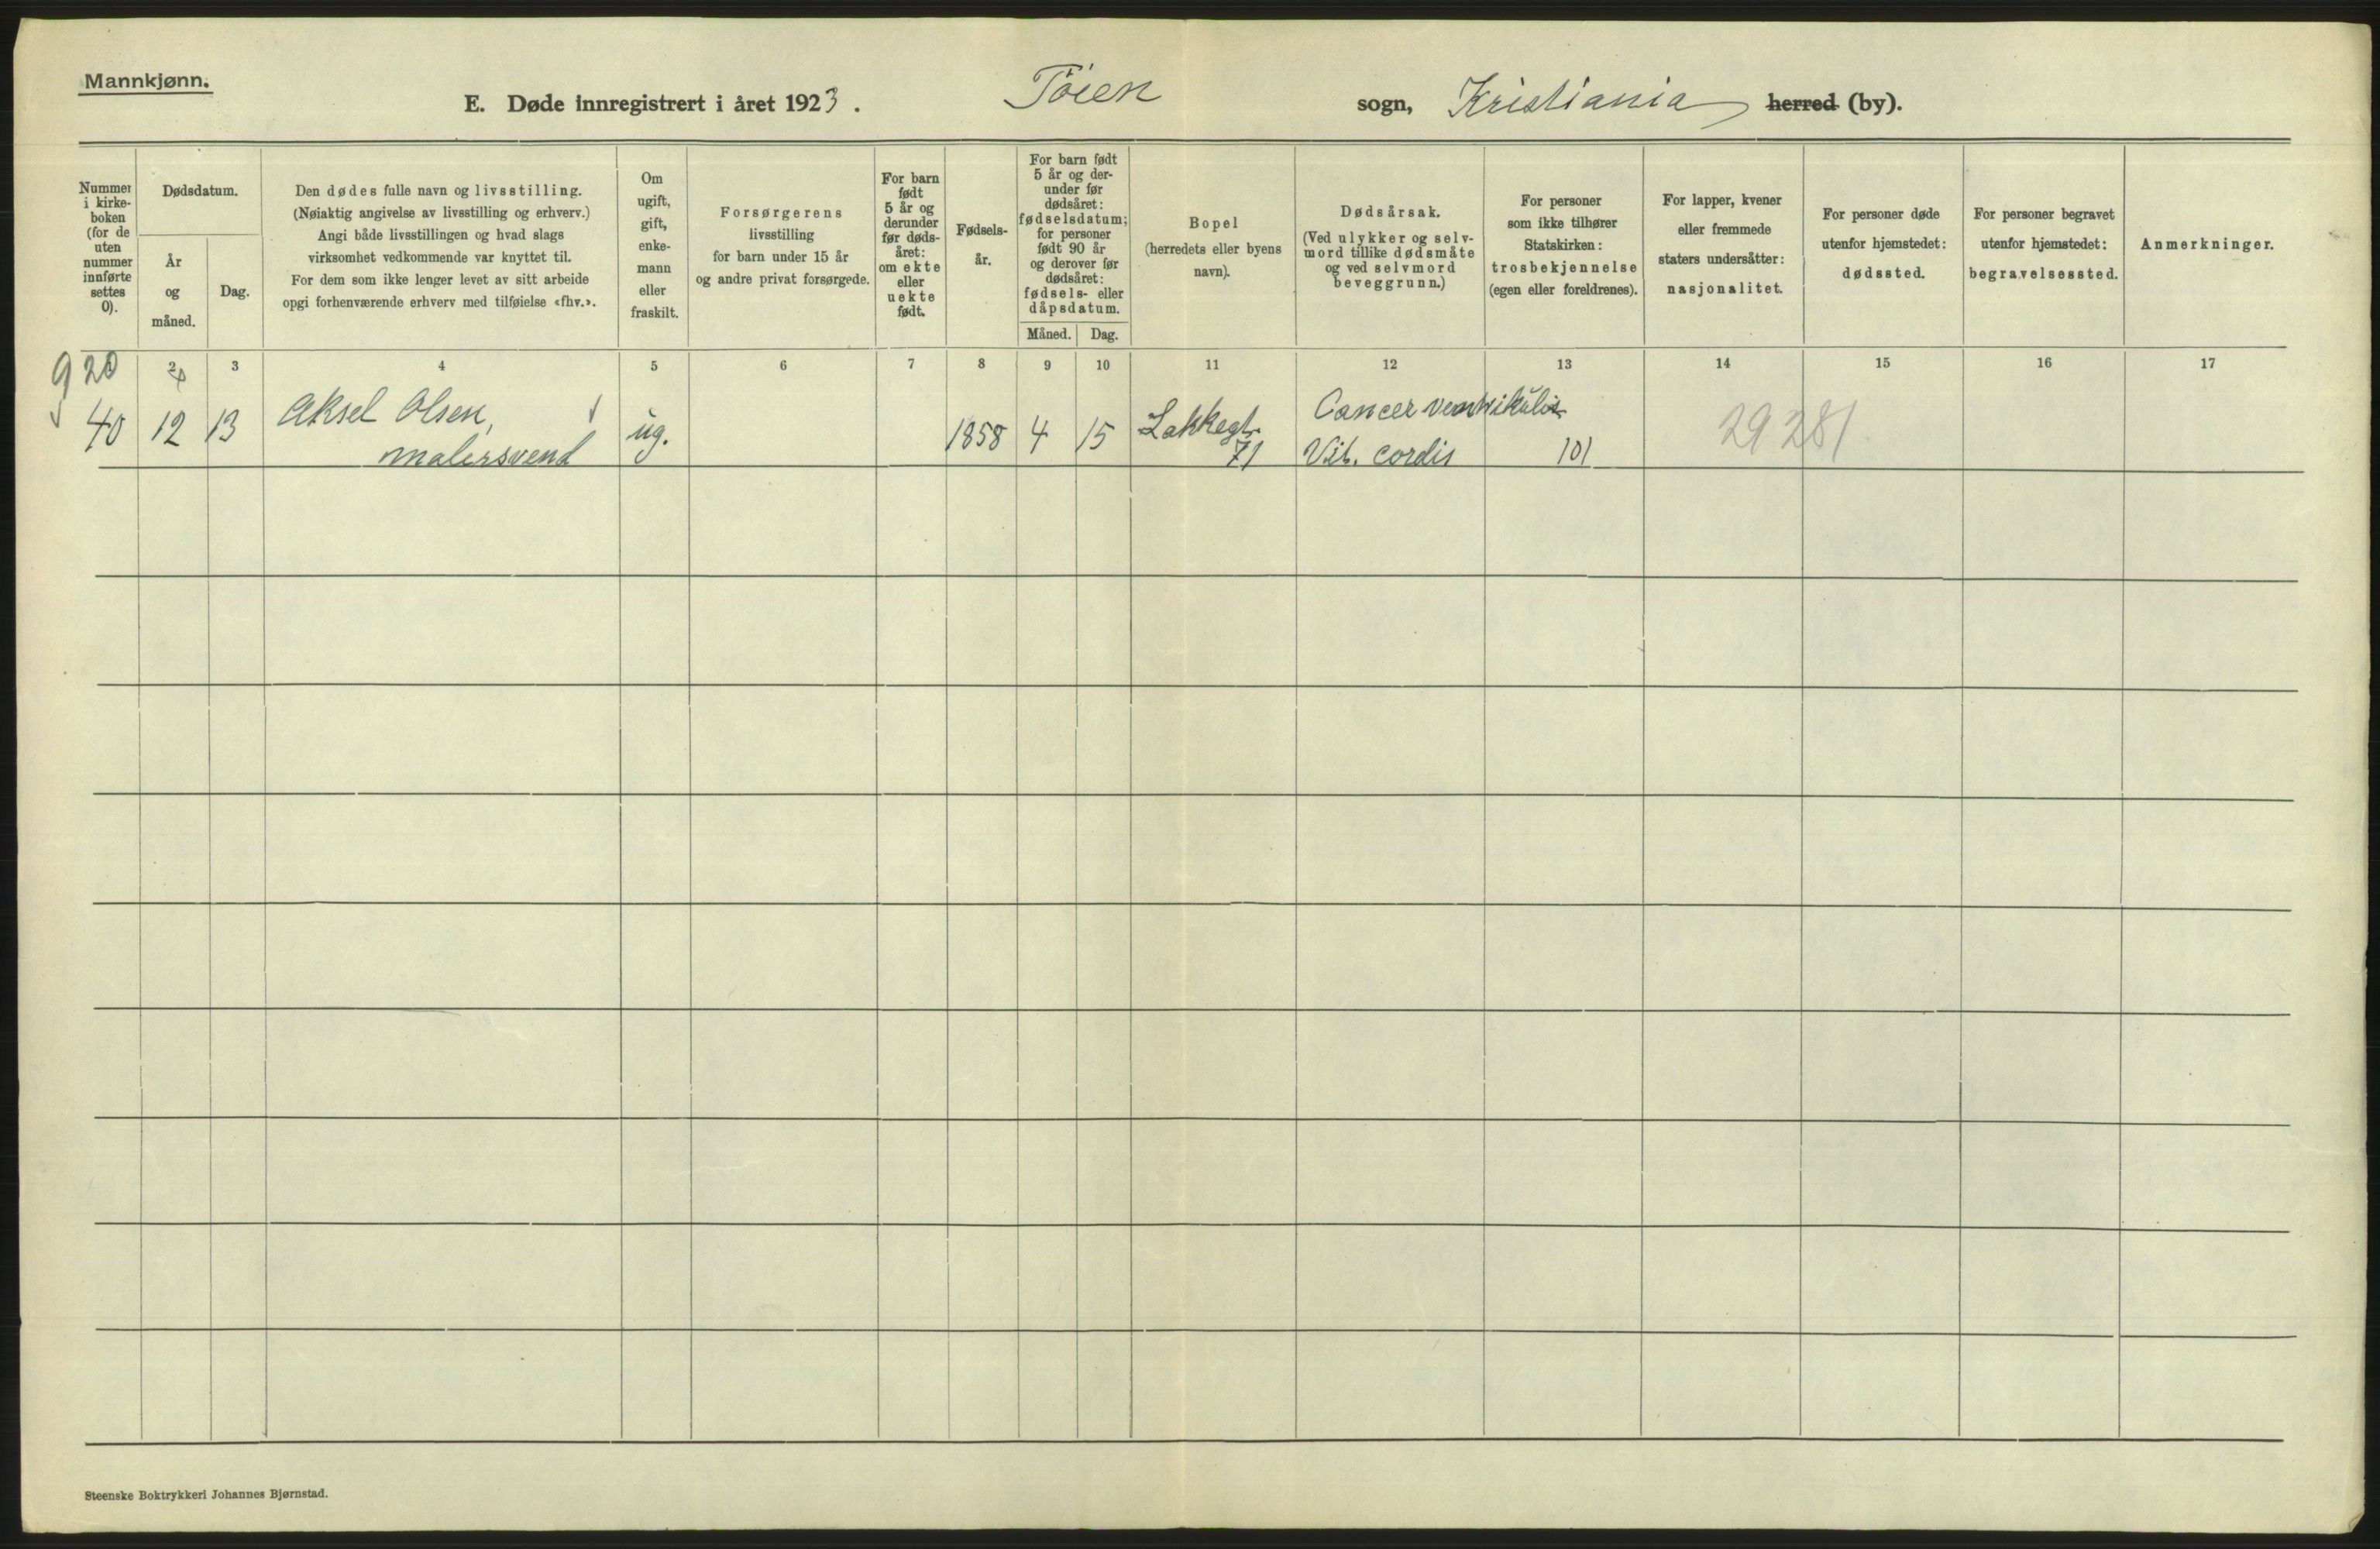 Mannkjønn.
E. Døde innregistrert i året 1923. Töien sogn, Kristiania herred (by).
Nummer i kirke-boken (for de uten nummer innførte settes 0).
Dødsdatum.
År og måned.
Dag.
Den dødes fulle navn og livsstilling.
(Nøiaktig angivelse av livsstilling og erhverv.)
Angi både livsstillingen og hvad slags
virksomhet vedkommende var knyttet til.
For dem som ikke lenger levet av sitt arbeide
opgi forhenværende erhverv med tilføielse «fhv.».
Om ugift, gift, enke-mann eller fraskilt.
Forsørgerens
livsstilling
for barn under 15 år
og andre privat forsørgede.
For barn født 5 år og derunder før døds-året: om ekte eller uekte født.
Fødsels-år.
For barn født 5 år og der-under før dødsåret: fødselsdatum; for personer født 90 år og derover før dødsåret: fødsels- eller dåpsdatum.
Måned.
Dag.
Bopel
(herredets eller byens
navn).
Dødsårsak.
(Ved ulykker og selv-
mord tillike dødsmåte
og ved selvmord
beveggrunn.)
For personer
som ikke tilhører
Statskirken:
trosbekjennelse
(egen eller foreldrenes).
For lapper, kvener
eller fremmede
staters undersåtter:
nasjonalitet.
For personer døde
utenfor hjemstedet:
dødssted.
For personer begravet
utenfor hjemstedet:
begravelsessted.
Anmerkninger.
920
2 3 4 5 6 7 8 9 10 11 12 13 14 15 16 17
40 12 13 Aksel Olsen, ug. 1858 4 15 Lakkegt. Cancer ventrikulis 29281
malersvend 71 Vit. cordis 101
Steenske Boktrykkeri Johannes Bjørnstad.